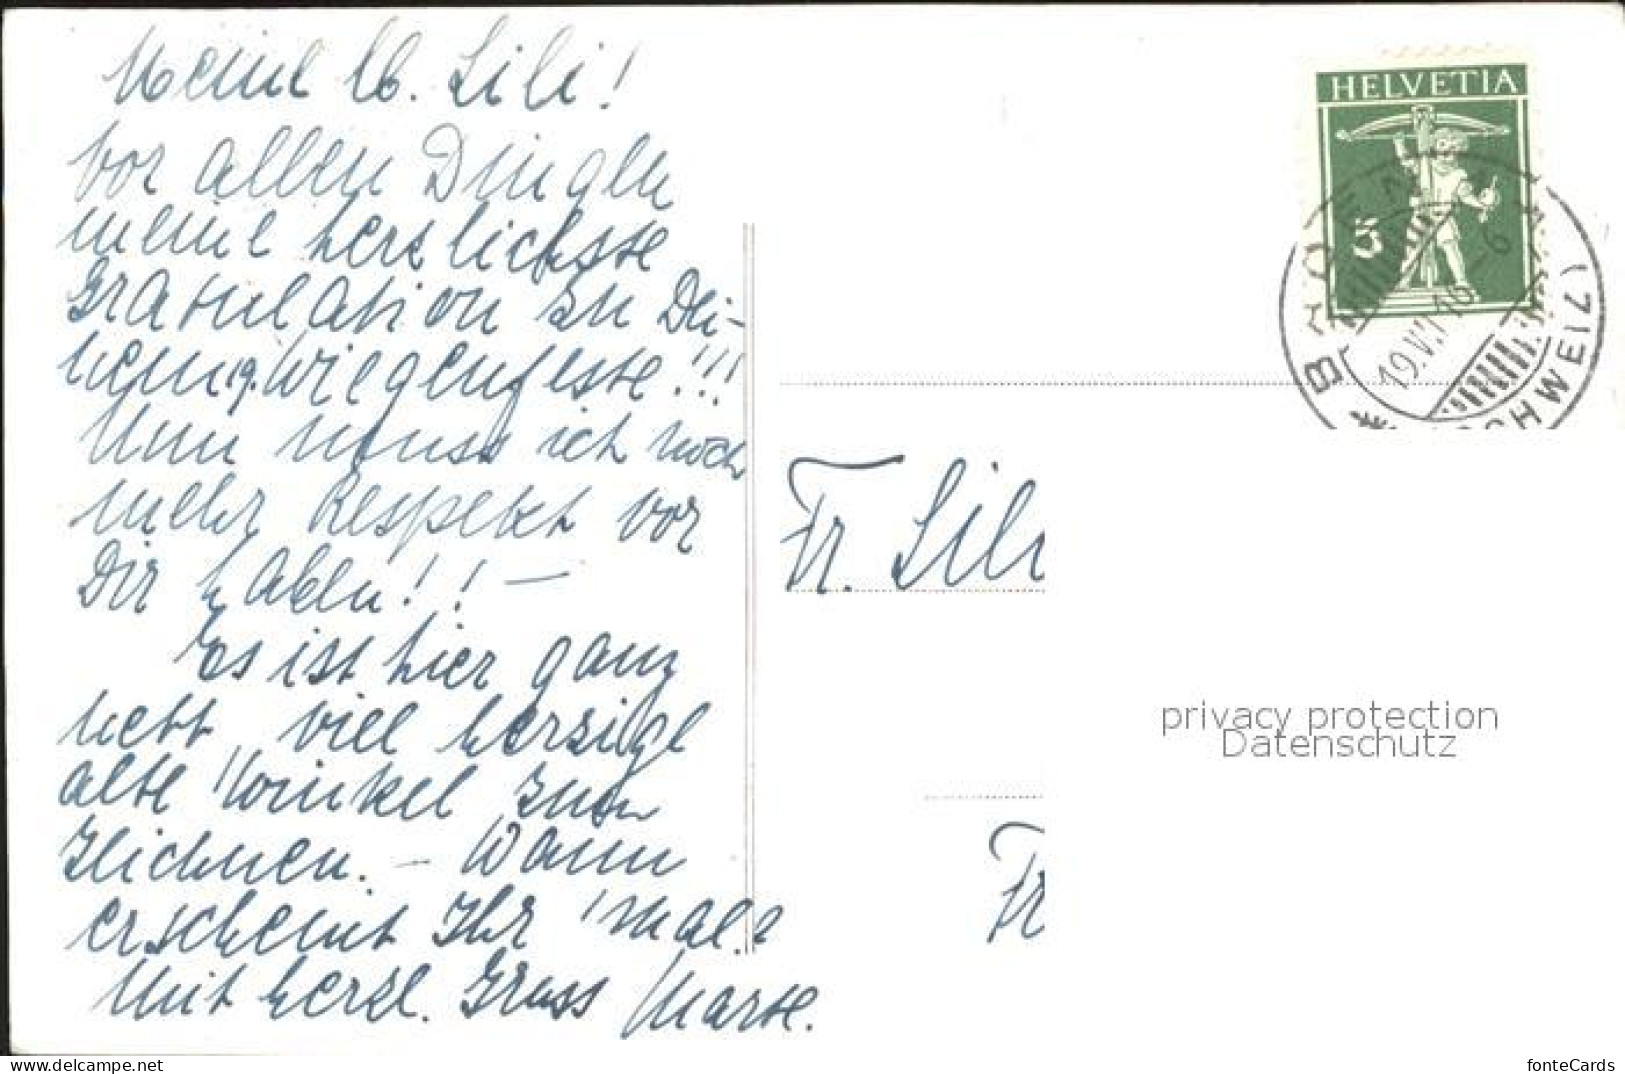 Meine lb. Lili!
Vor allen Dingen
meine herzlichste
Gratulation zu Dei-
nem 19. Wiegenfeste!!!
Nun muss ich noch
mehr Respekt vor
Dir haben!! —
Es ist hier ganz
nett, viel herzige
alte Winkel zum
Zeichnen. — Wann
erscheint Ihr mal?
Mit herzl. Gruss
HELVETIA
5
19.VI
(SCHWEIZ)
Fr. Lili
privacy protection
Datenschutz
Fr
fonteCards